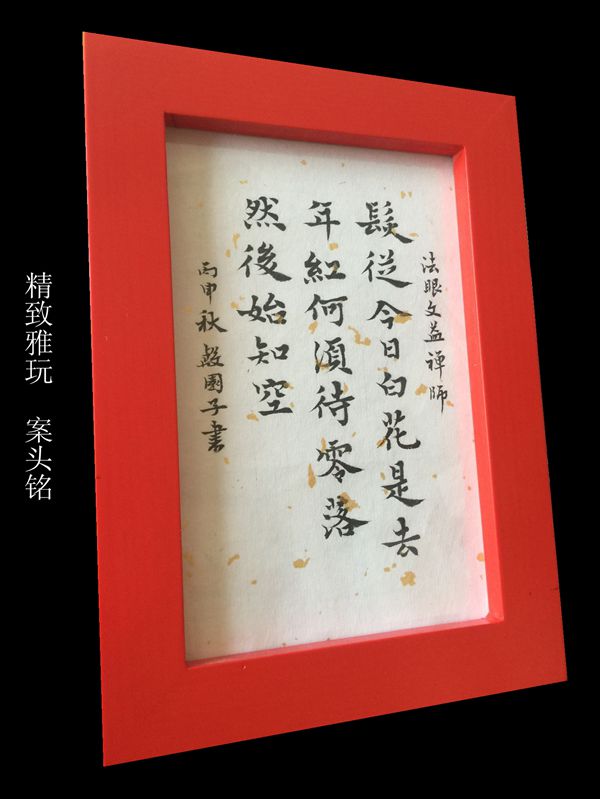 法眼文益禅师
髮従今日白花是去
年紅何須待零落
然後始知空
丙申秋 殷國子書
精致雅玩 案头铭